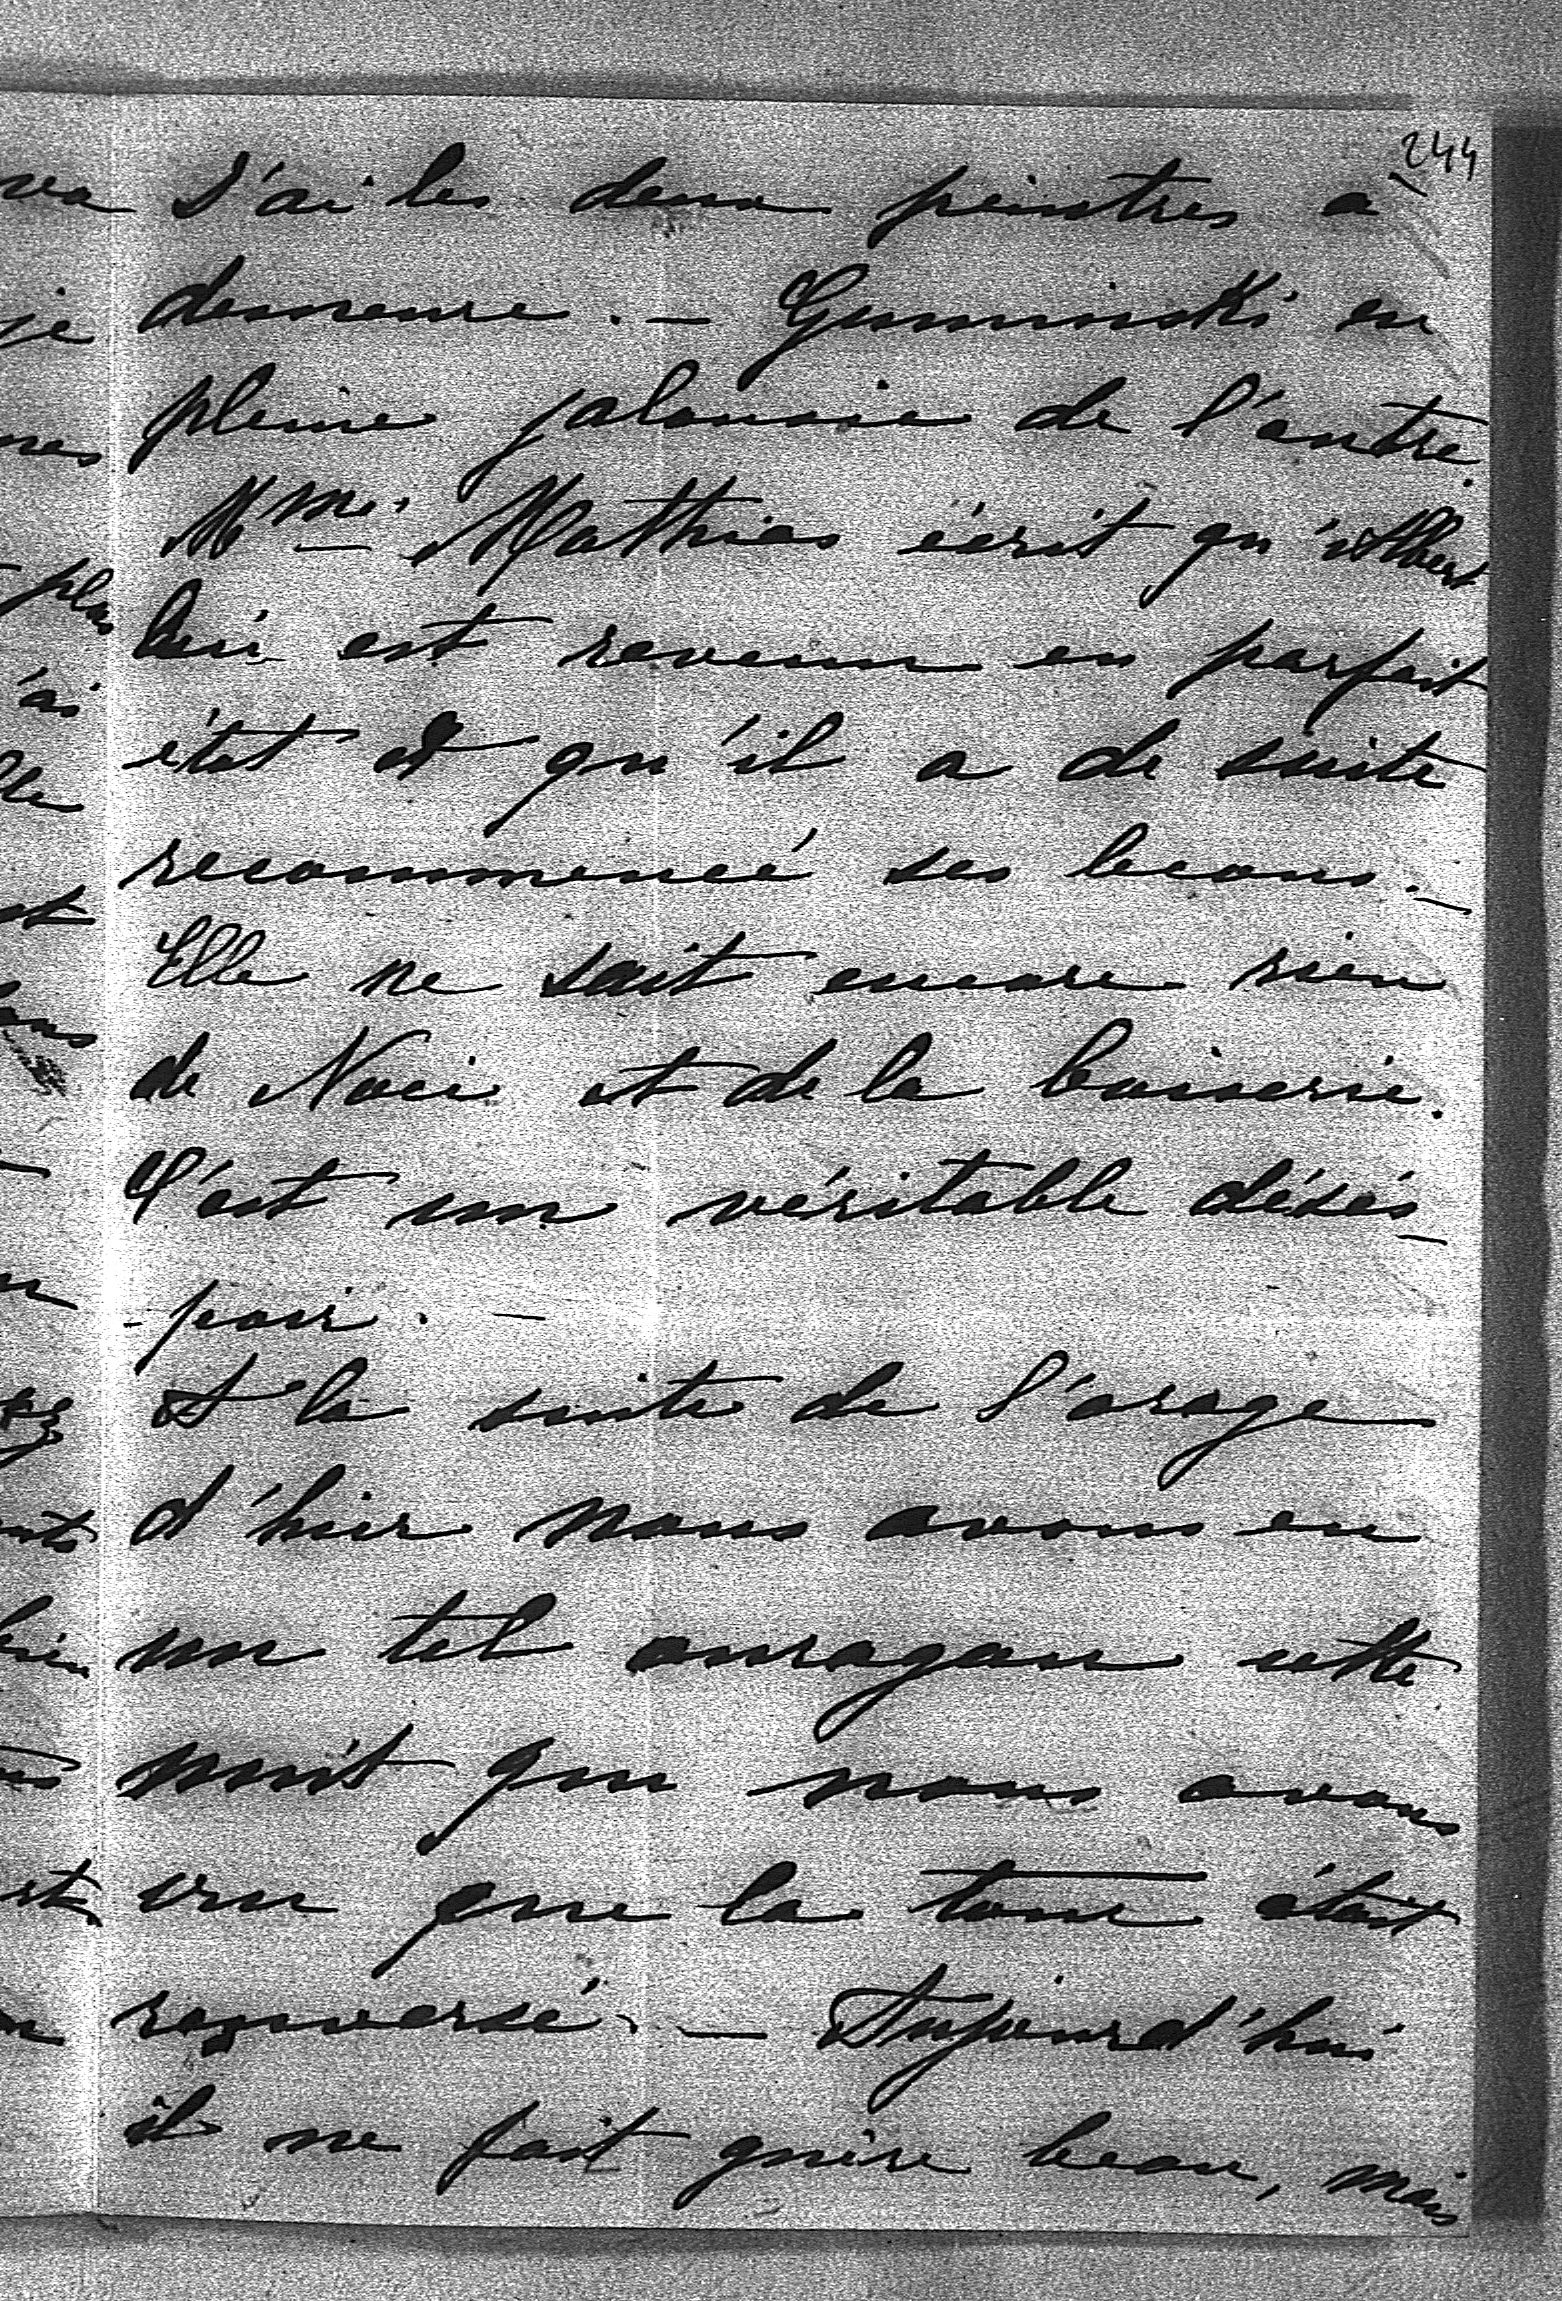 244
J'ai les deux peintres a
demeure. — Guminski en
pleine jalousie de l'autre.
Mme. Mathias écrit qu'Albert
lui est revenu en parfait
état et qu'il a de suite
recommencé ses lecons. —
Elle ne sait encore rien
de Noci et de la boiserie.
C'est un véritable déses-
-poir. —
A la suite de l'orage
d'hier nous avons eu
un tel ouragan cette
nuit que nous avons
cru que la tour était
renversé. — Aujourd'hui
il ne fait guère beau, mais